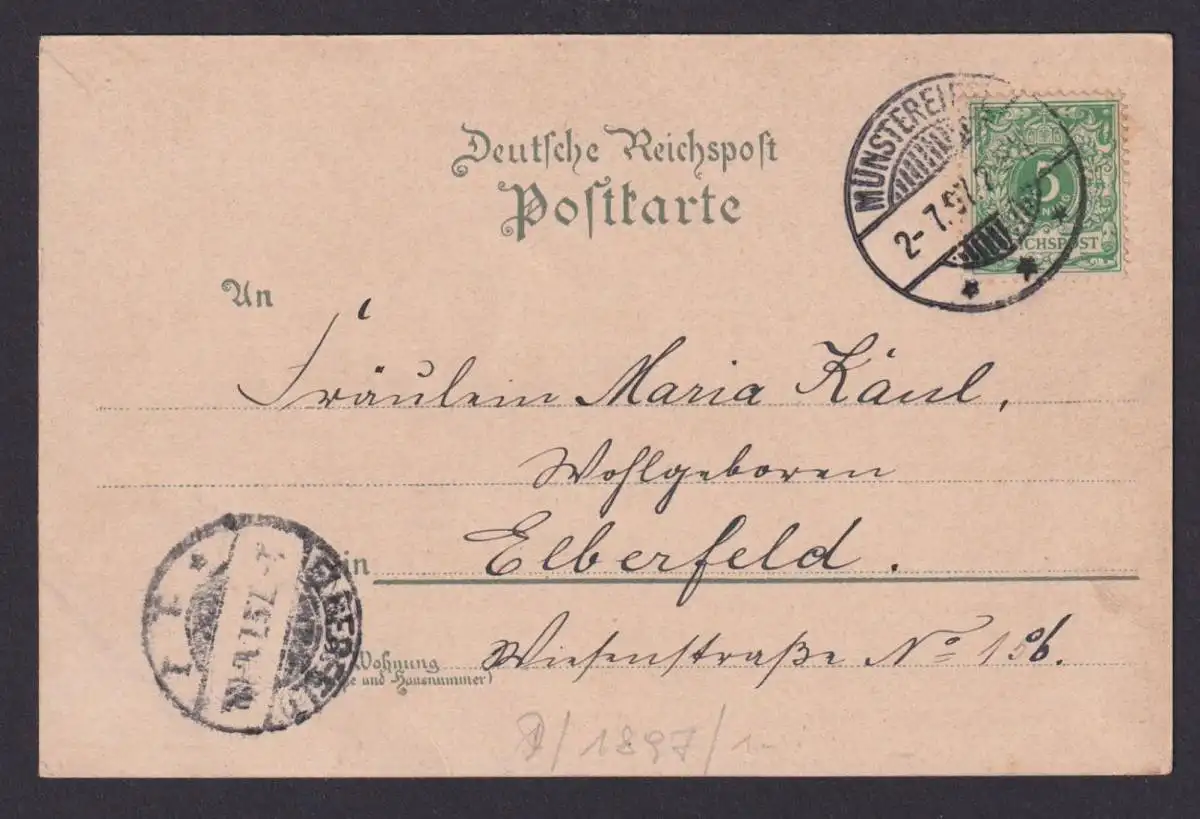 Deutsche Reichspost
Postkarte
MÜNSTEREIF
2-7.97.
5
REICHSPOST
An
Fräulein Maria Käul,
Wohlgeboren
in Elberfeld.
ELBERFELD
Wohnung
und Hausnummer)
Wiesenstraße No
1897/1-